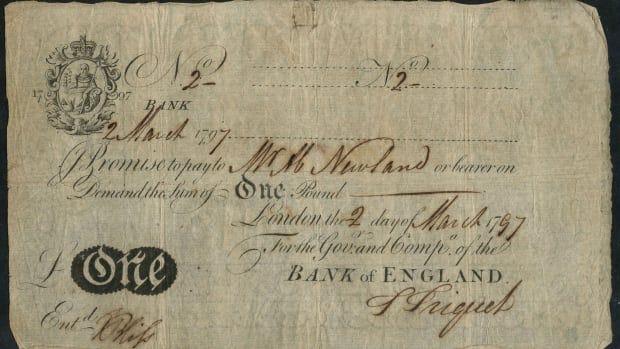 No 2 No 2
1797
BANK
2 March 1797
I Promise to pay to Mr Ab Newland or bearer on
Demand the Sum of One Pound
London the 2 day of March 1797
For the Govr. and Compa. of the
BANK of ENGLAND.
£ One
Entd.